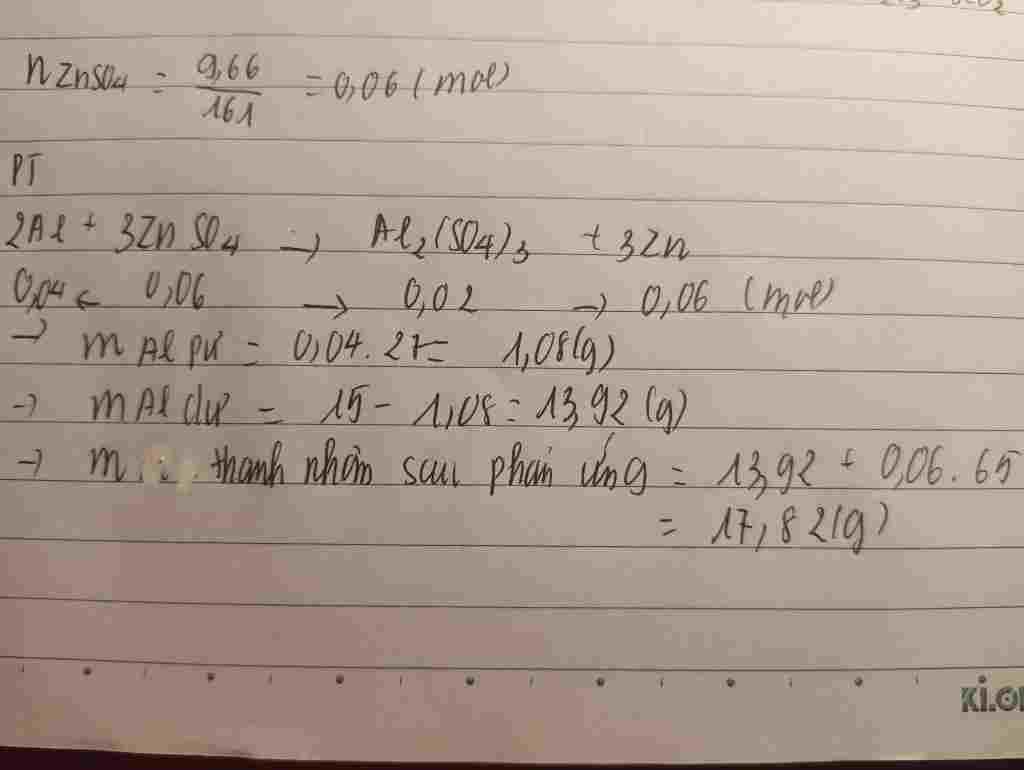 nZnSO₄ = 9,66/161 = 0,06 (mol)
PT
2Al + 3ZnSO₄ → Al₂(SO₄)₃ + 3Zn
0,04 ← 0,06 → 0,02 → 0,06 (mol)
→ mAl pư = 0,04.27= 1,08(g)
→ mAl dư = 15 - 1,08 = 13,92 (g)
→ m thanh nhôm sau phản ứng = 13,92 + 0,06.65
= 17,82(g)